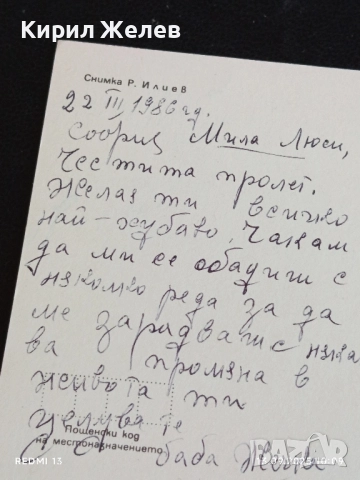 Кирил Желев
Снимка Р. Илиев
22 III 1986 гд.
София Мила Люси,
Честита пролет.
Желая ти всичко
най-хубаво. Чакам
да ми се обадиш с
няколко реда за да
ме зарадваш с няка
ва промяна в
живота ти
целува те
Пощенски код
на местоназначението.
баба
REDMI 13